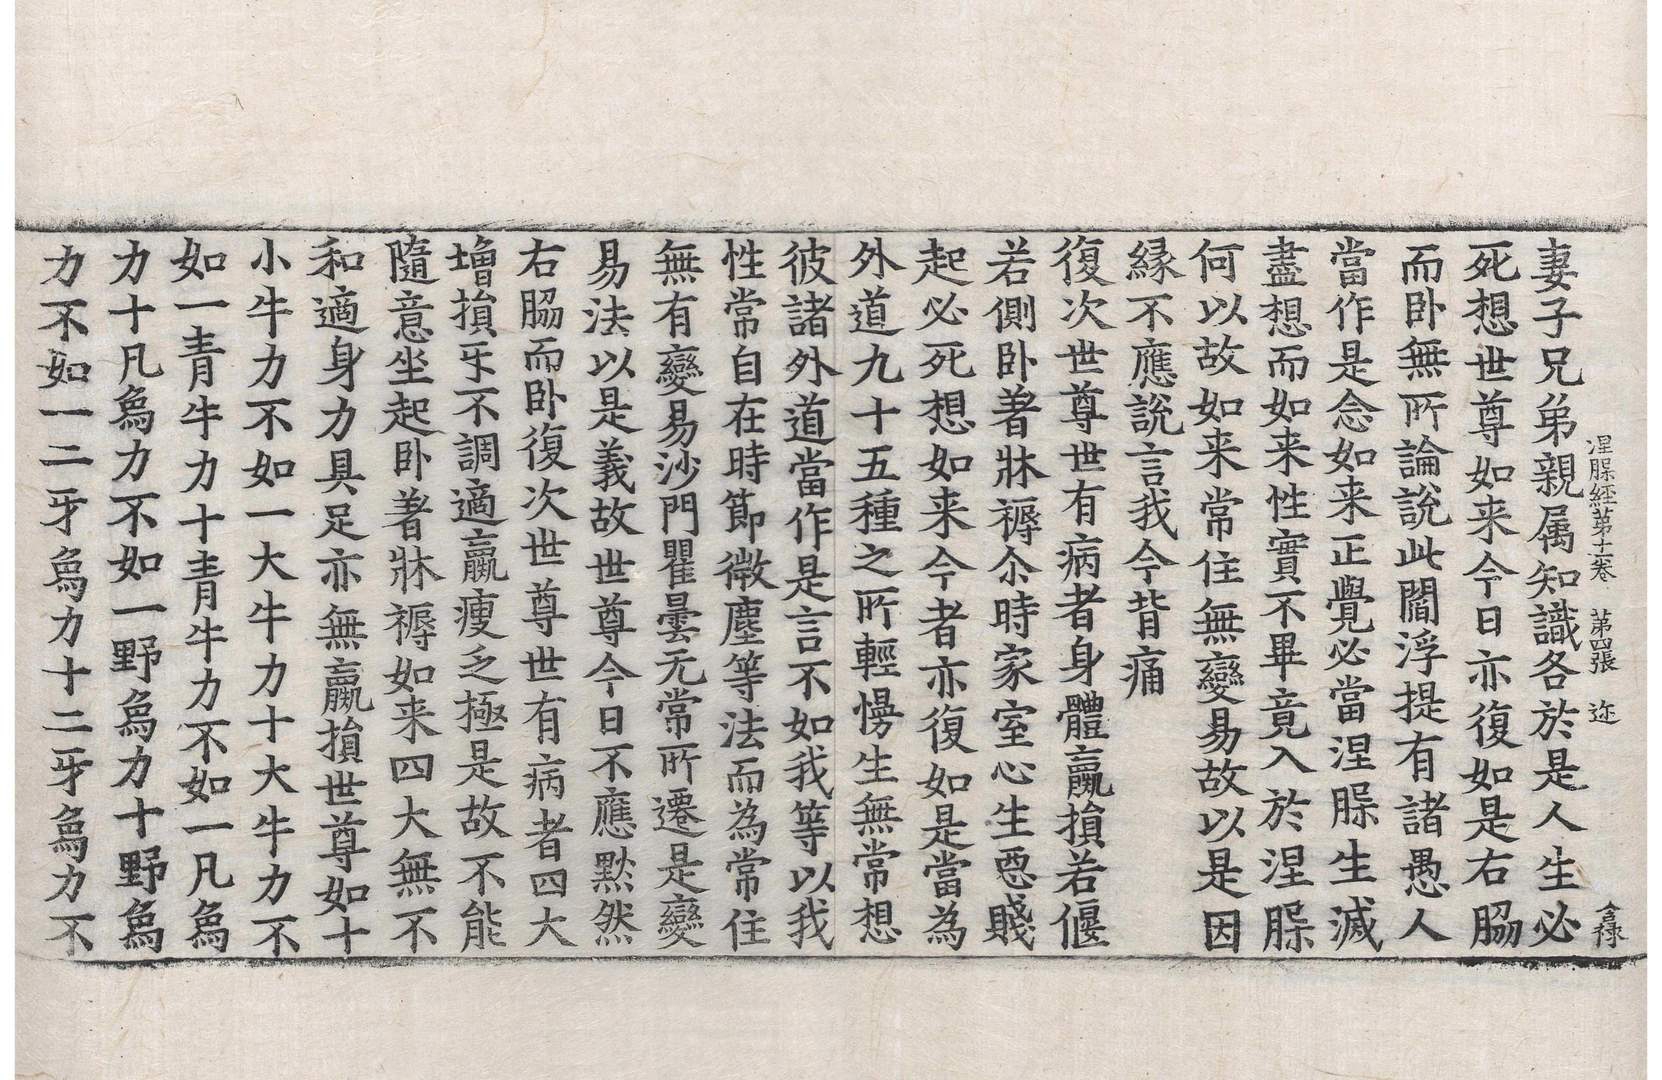 涅槃經第十一卷　第四張　迩
妻子兄弟親属知識各於是人生必
死想世尊如来今日亦復如是右脇
而卧無所論說此閻浮提有諸愚人
當作是念如来正覺必當涅槃生滅
盡想而如来性實不畢竟入於涅槃
何以故如来常住無變易故以是因
縁不應說言我今背痛
復次世尊世有病者身體羸損若偃
若側卧著牀褥尒時家室心生惡賤
起必死想如来今者亦復如是當為
外道九十五種之所輕慢生無常想
彼諸外道當作是言不如我等以我
性常自在時節微塵等法而為常住
無有變易沙門瞿曇无常所遷是變
易法以是義故世尊今日不應默然
右脇而卧復次世尊世有病者四大
增損乐不調適羸瘦乏極是故不能
隨意坐起卧著牀褥如来四大無不
和適身力具足亦無羸損世尊如十
小牛力不如一大牛力十大牛力不
如一青牛力十青牛力不如一凡象
力十凡象力不如一野象力十野象
力不如一二牙象力十二牙象力不